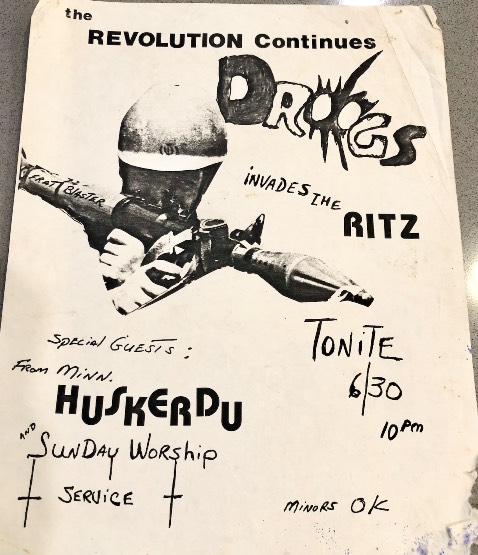 the
REVOLUTION Continues
DROOGS
INVADES THE
RITZ
FRAT
BLASTER
SPECIAL GUESTS:
FROM MINN.
HUSKERDU
AND
SUNDAY WORSHIP
SERVICE
TONITE
6/30
10 PM
MINORS OK